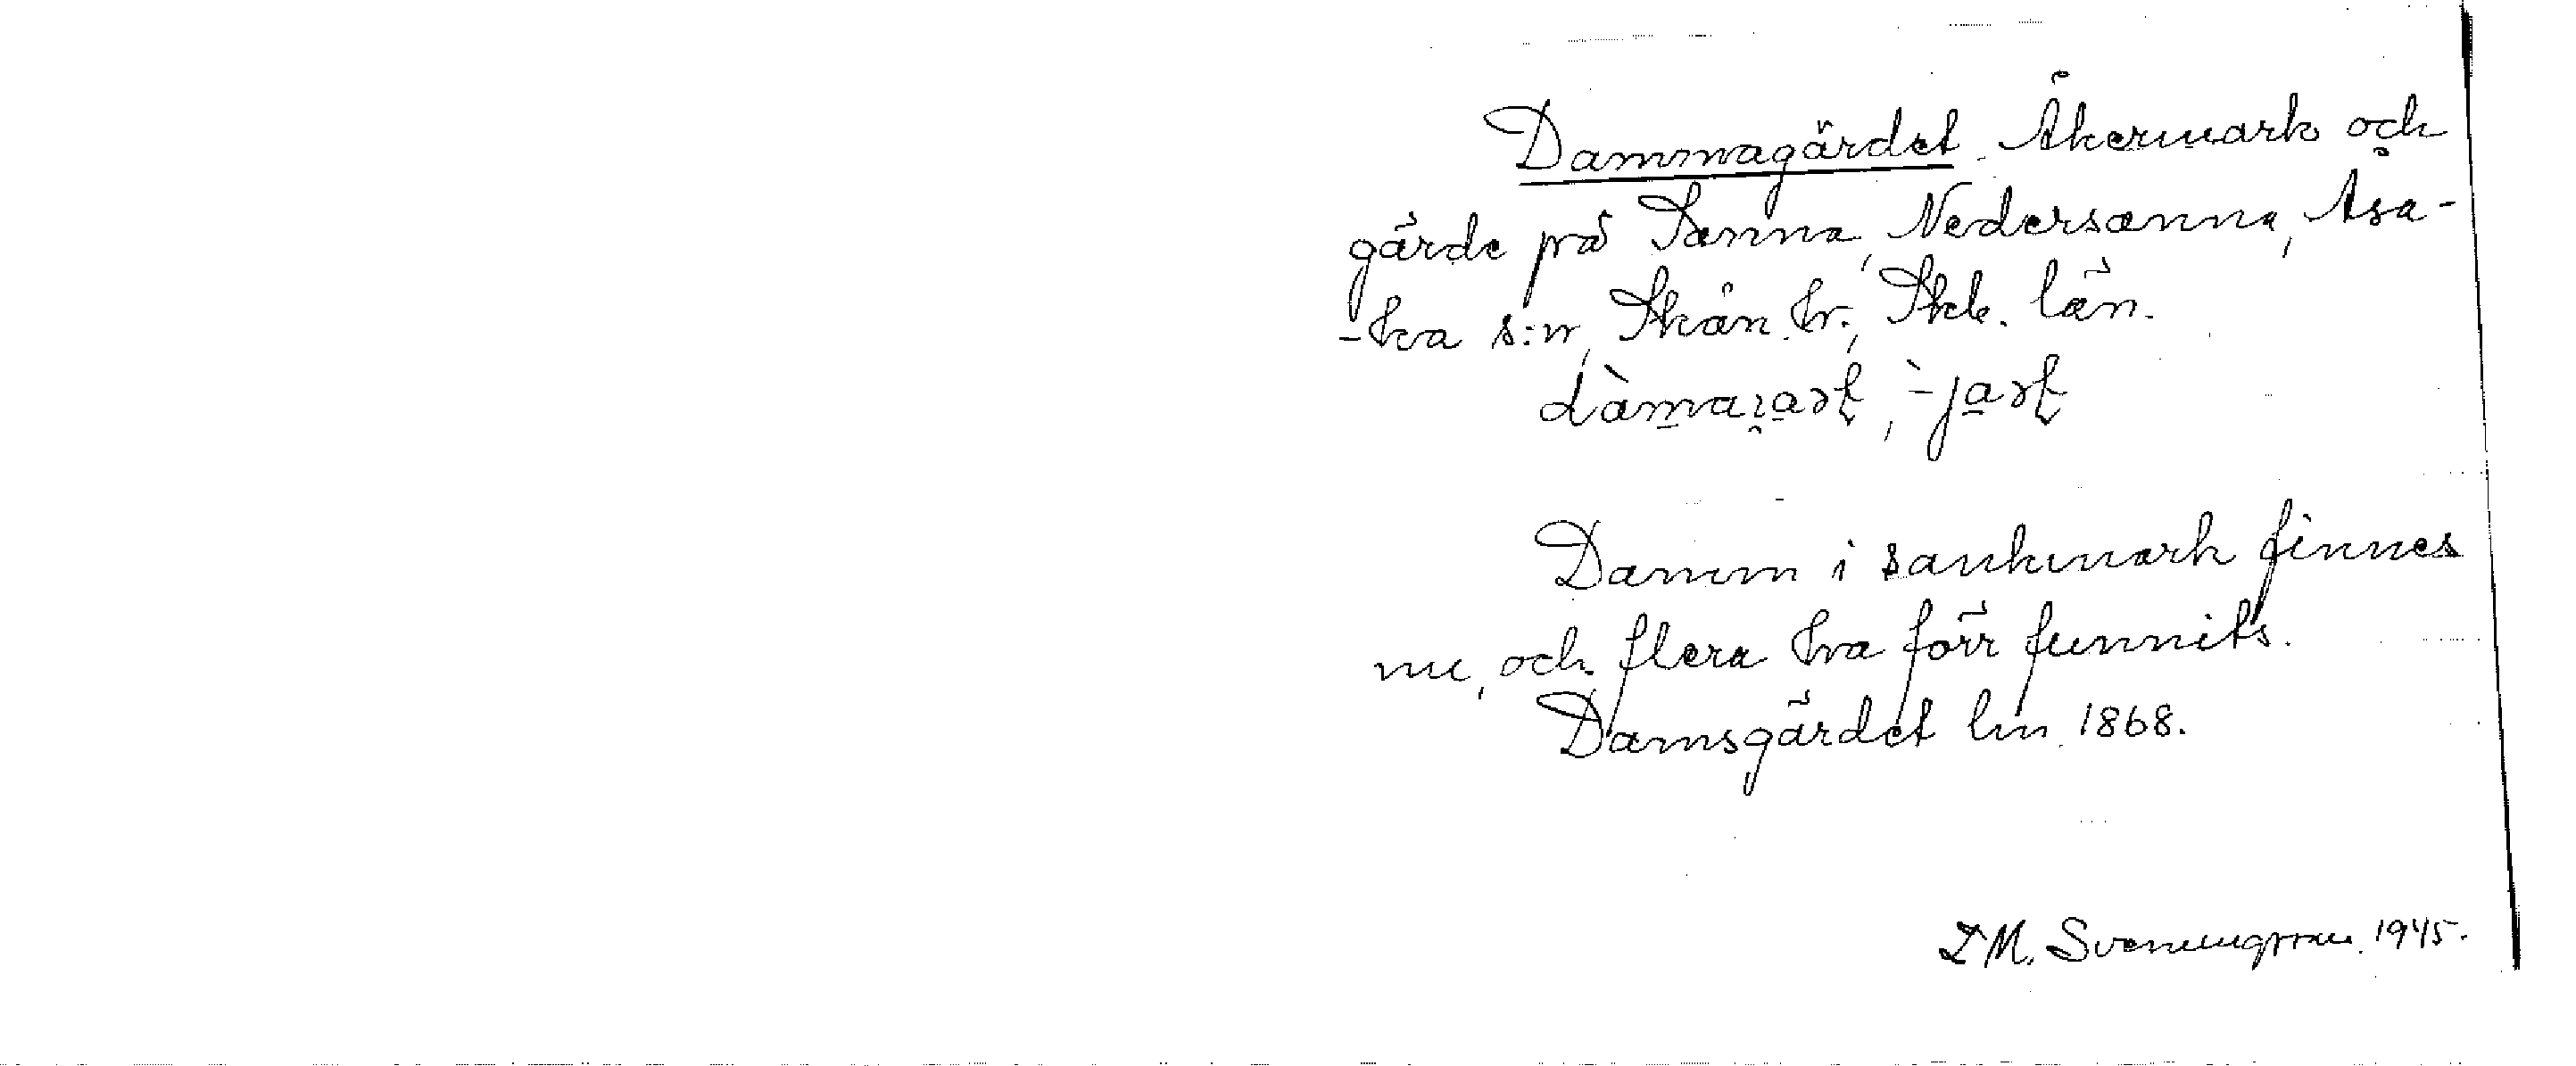 Dammagärdet. Åkermark och
gärde på Sanna, Nedersanna, Åsa-
-ka s:n, Skån. hr., Skb. län.
Damm i sankmark finnes
nu, och flera ha förr funnits.
Damsgärdet lm 1868.
D M. Svenungsson 1945.